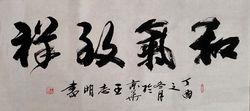 和氣致祥
丁酉之冬月於京華王志明書